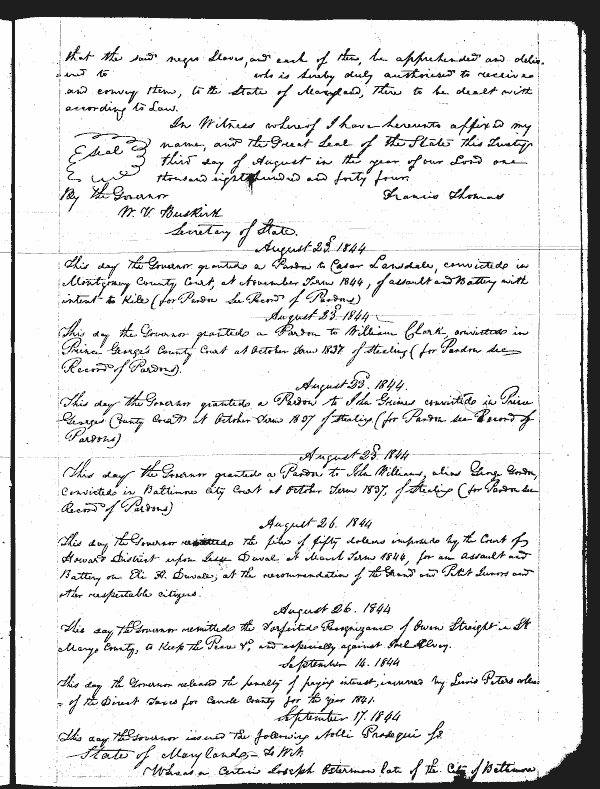 that the said negro Slaves, and each of them, be apprehended and deliv-
ered to who is hereby duly authorised to receive
and convey them, to the State of Maryland, there to be dealt with
according to Law.
In Witness whereof I have hereunto affixed my
name, and the Great Seal of the State this twenty
Seal
third day of August in the year of our Lord one
thousand eight hundred and forty four.
By the Governor Francis Thomas
W. V. Buskirk
Secretary of State.
August 23d. 1844
This day the Governor granted a Pardon to Cesar Lansdale, convicted in
Montgomery County Court, at November Term 1844, of assault and Battery with
intent to Kill (for Pardon See Record of Pardons)
August 23d. 1844
This day the Governor granted a Pardon to William Clark convicted in
Prince George's County Court at October Term 1837 of Stealing (for Pardon see
Record of Pardons).
August 23d. 1844.
This day the Governor granted a Pardon to John Grimes convicted in Prince
Georges County Court at October Term 1837 of Stealing (for Pardon see Record of
Pardons)
August 23d. 1844
This day the Governor granted a Pardon to John Williams, alias George Gordon,
convicted in Baltimore City Court at October Term 1837, of Stealing (for Pardon see
Record of Pardons)
August 26. 1844
This day the Governor the fine of fifty dollars imposed by the Court of
Howard District upon Duval at March Term 1844, for an Assault and
Battery on Eli H. Duvale, at the recommendation of the Grand and Petit Jurors and
other respectable citizens.
August 26. 1844
This day the Governor remitted the forfeited Recognizance of Owen Straight in St
Marys County, to Keep the Peace &c, and especially against
September 14. 1844
This day the Governor released the penalty of paying interest, incurred by Lewis Peters collec-
-r of the Direct Taxes for Carroll County for the year 1841.
September 17. 1844
This day the Governor issued the following Nolli Prosequi &c
State of Maryland, to Wit
Whereas a Certain Joseph Osterman late of the City of Baltimore